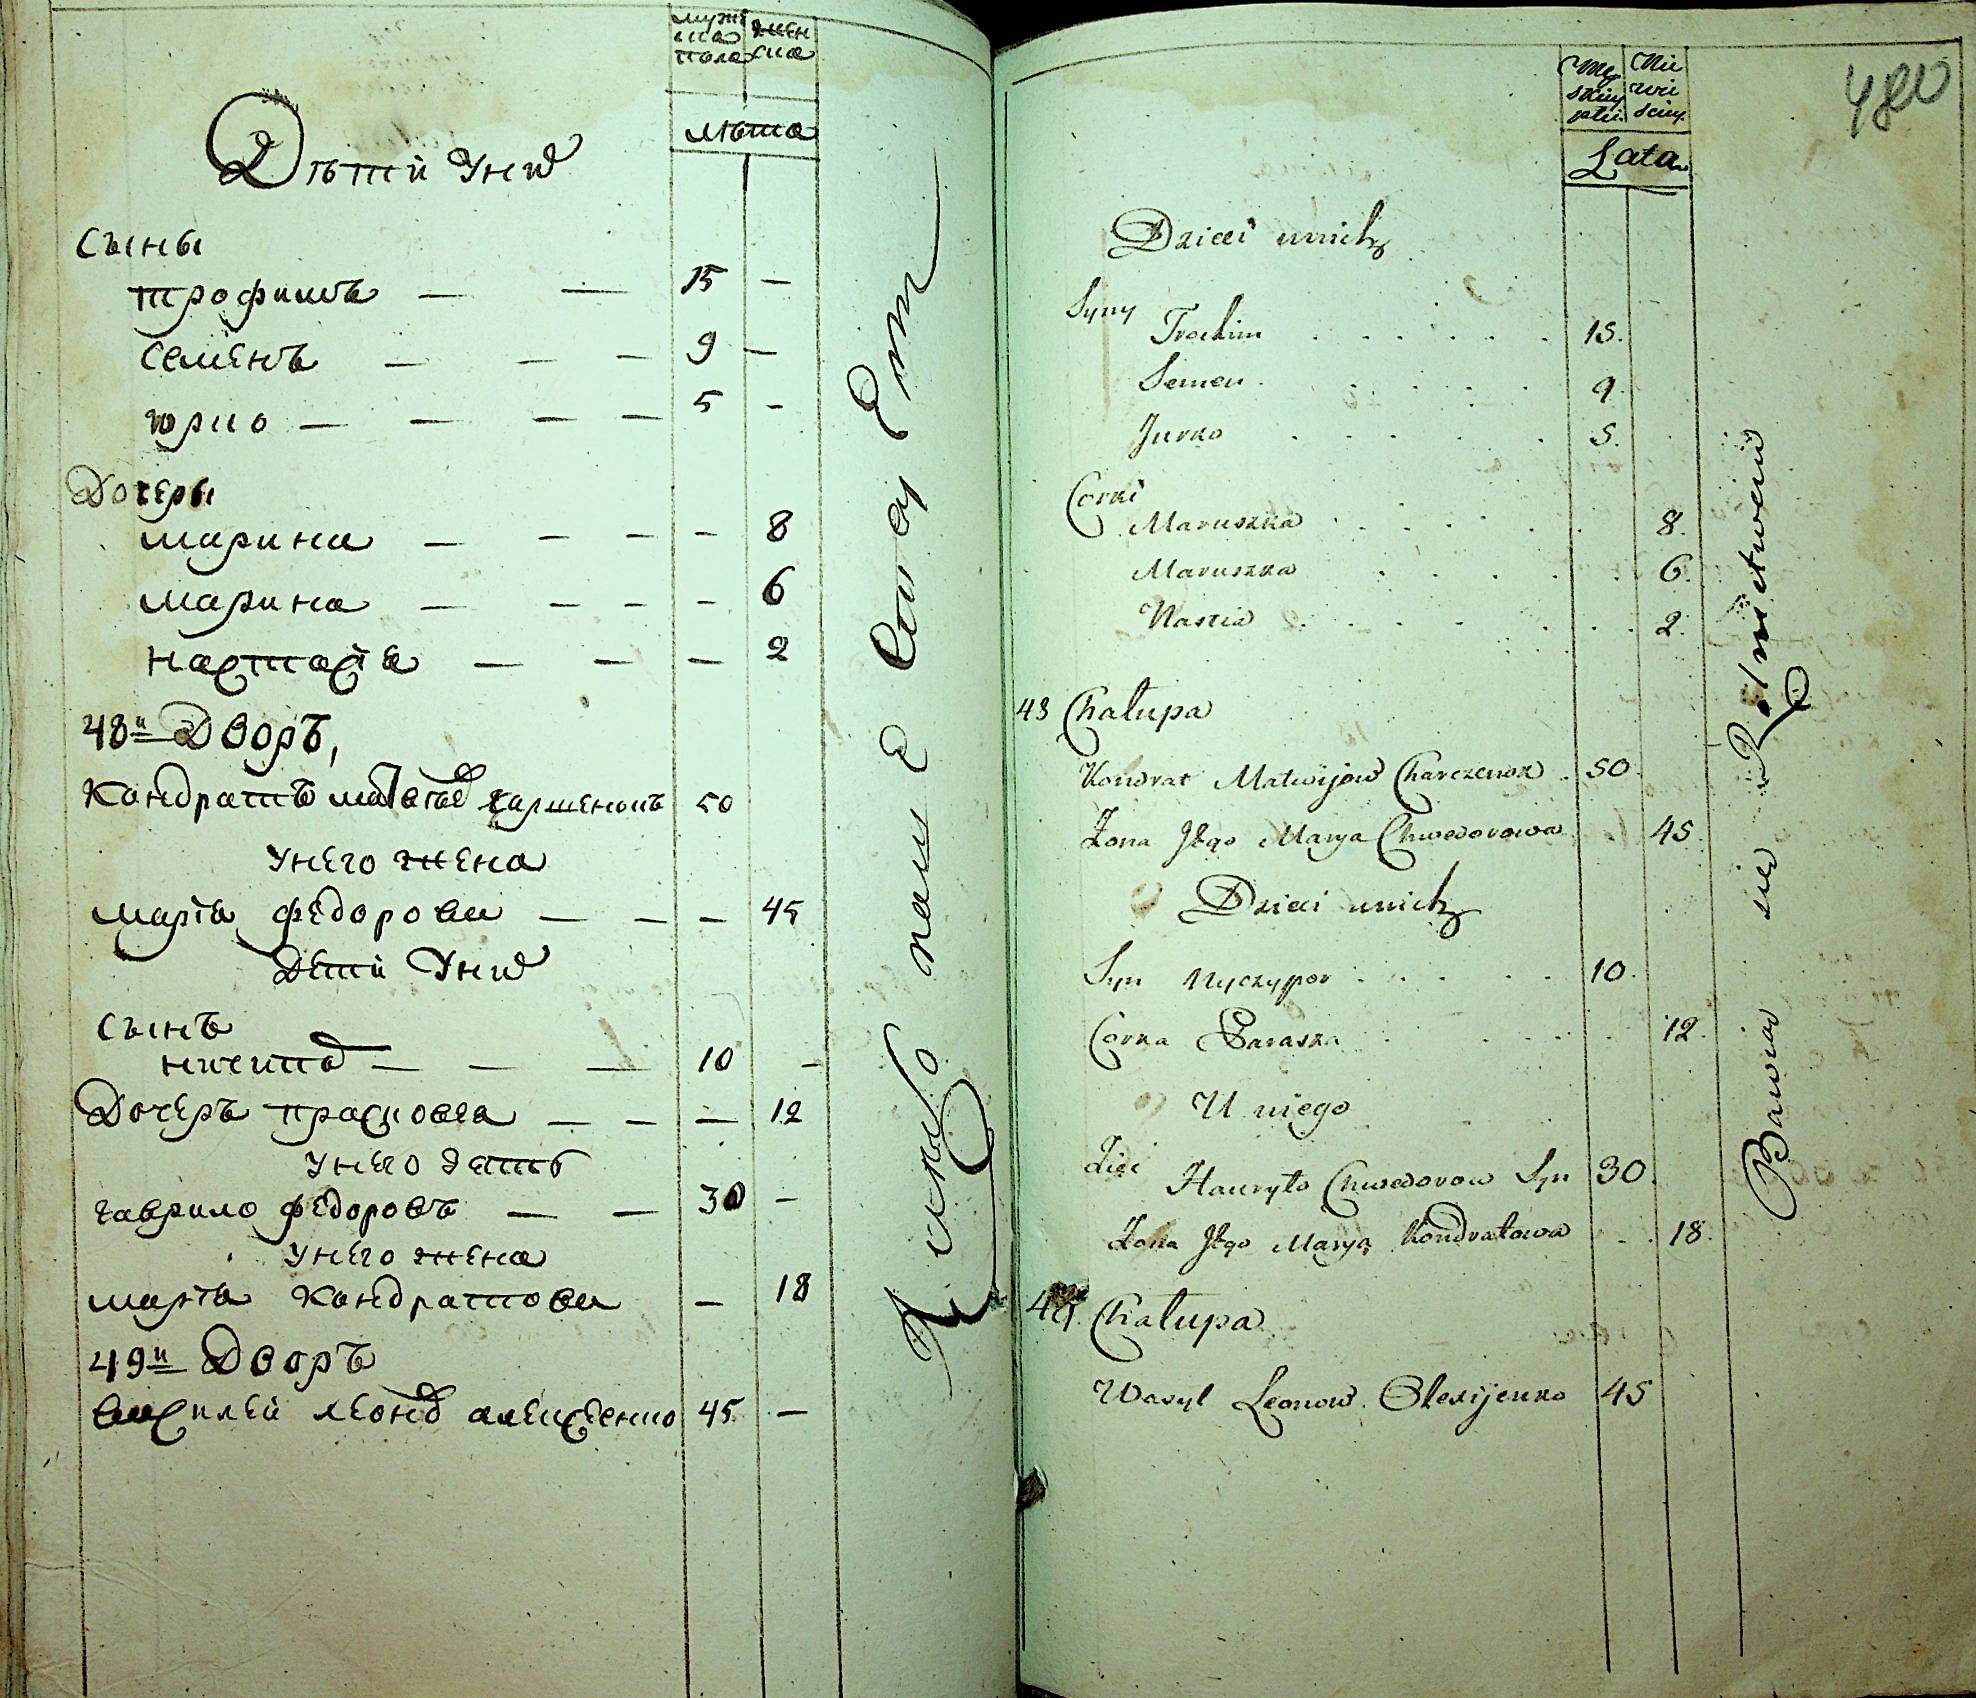 мужс
ка
пола
жен
ска
лѣта
Дѣтй У них
Сыны
трофимъ — — 15 —
Семенъ — — — 9 —
юрко — — — — 5 -
Дочеры
марина — — — — 8
марина — — — — 6
настасія — — — 2
48й Дворъ,
Кондратъ матвѣевъ харченокъ 50
У него жена
марія федорова — — — 45
Дети У них
Сынъ
ничипоръ — — — 10 -
Дочеръ прасковея — — — 12
У него зять
гаврило федоровъ — — 30 —
У него жена
марія кондратова — 18
49й Дворъ
василей леоновъ алексеенко 45 —
480
Męskiey płci
Niewiesciey
Lata
Dzieci u nich
Syny
Trochim . . . . . . 15.
Semen . . . . . 9.
Jurko . . . . . 5.
Corki
Maruszka . . . . . . 8.
Maruszka . . . . . 6.
Nastia . . . . . . 2.
48 Chałupa
Kondrat Matwijow Charczenok . 50.
Żona Jego Marya Chwedorowa 45.
Dzieci u nich
Syn Nyczypor . . . . . 10.
Corka Paraska . . . . . 12.
U niego
Zięć
Hauryło Chwedorow Syn 30.
Żona Jego Marya Kondratowa . . 18.
49. Chałupa
Wasyl Leonow Olexijenko 45
Bawią się Rolnictwem